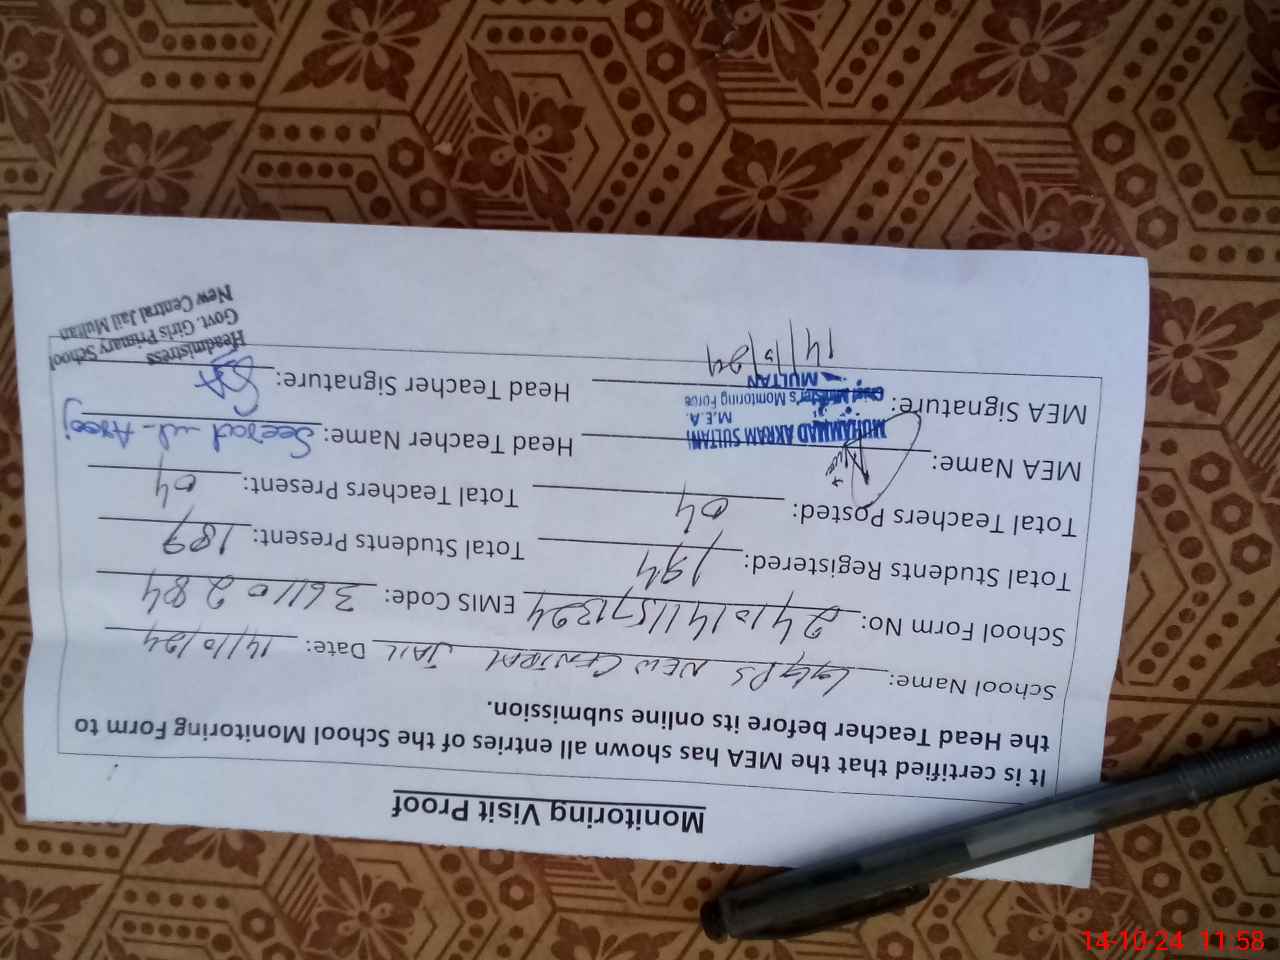 Monitoring Visit Proof
It is certified that the MEA has shown all entries of the School Monitoring Form to
the Head Teacher before its online submission.
School Name: GGPS NEW CENTRAL JAIL Date: 14/10/24
School Form No: 24101411571324 EMIS Code: 36110284
Total Students Registered: 194 Total Students Present: 189
Total Teachers Posted: 04 Total Teachers Present: 04
MEA Name: MUHAMMAD AKRAM SULTANI Head Teacher Name: Seerat ul-
M.E.A.
Chief Minister's Monitoring Force
MULTAN
MEA Signature: Head Teacher Signature:
14/10/24
Headmistress
Govt. Girls Primary School
New Central Jail Multan
14-10-24 11:58